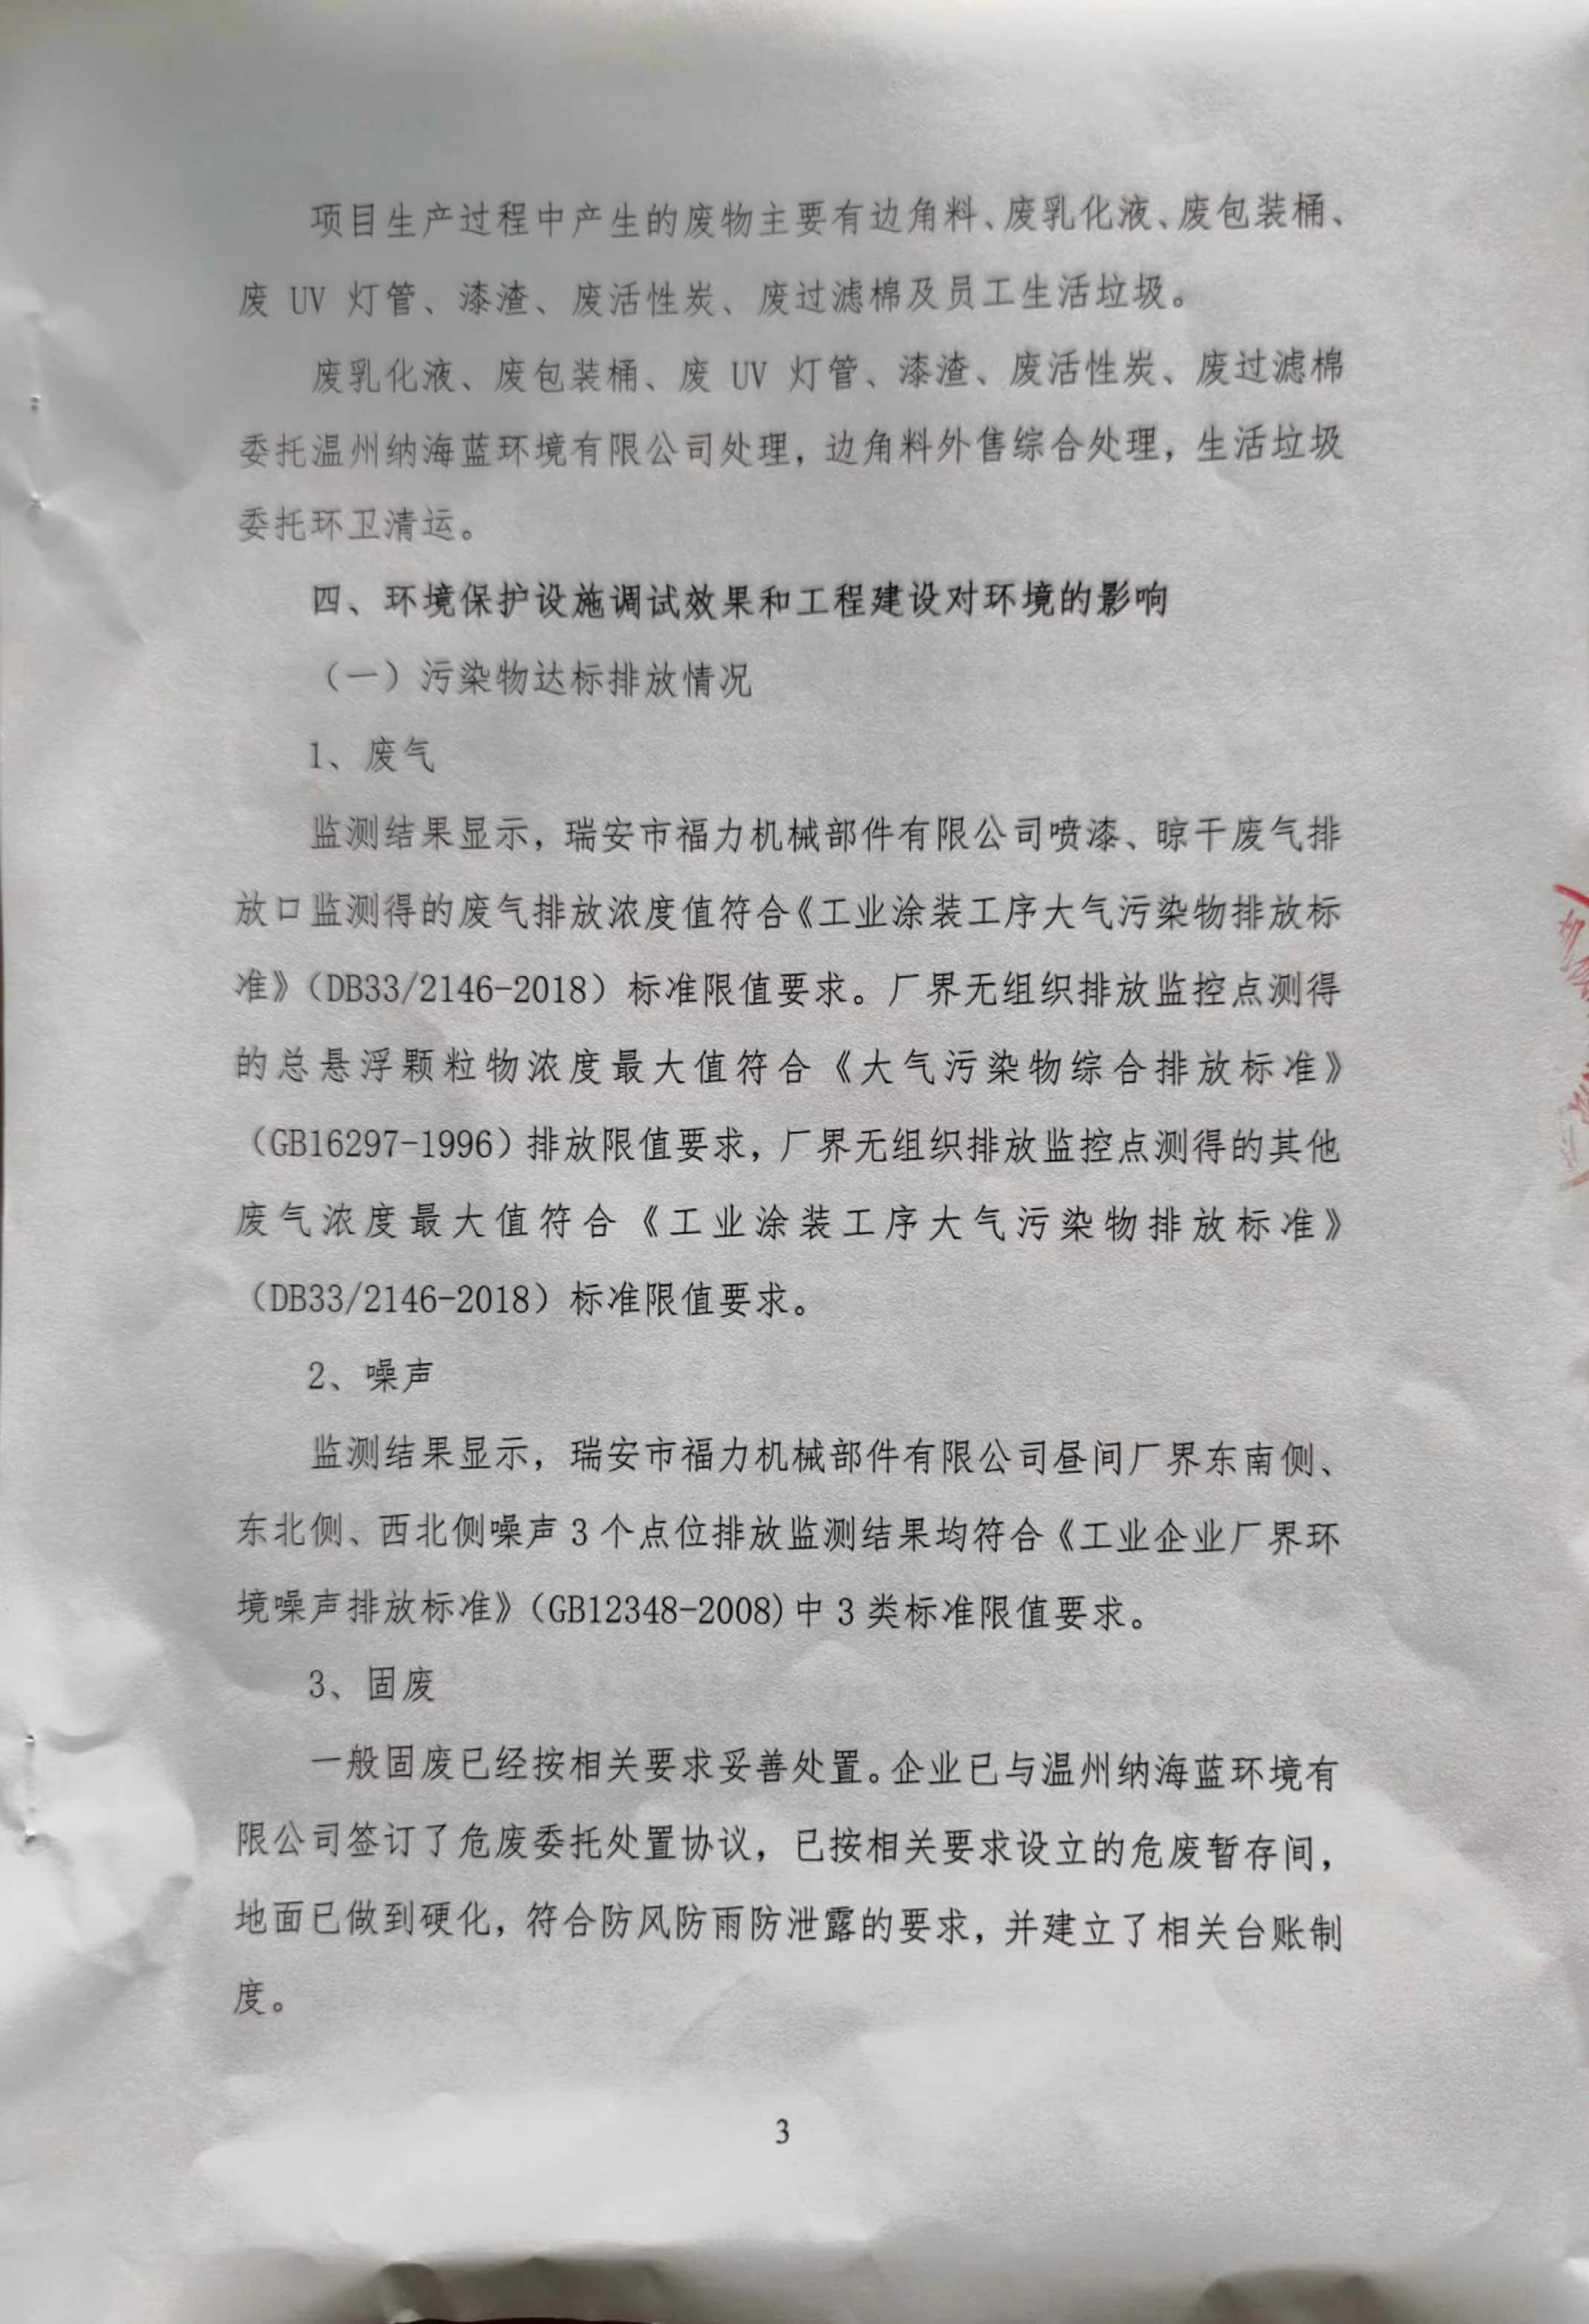 项目生产过程中产生的废物主要有边角料、废乳化液、废包装桶、
废 UV 灯管、漆渣、废活性炭、废过滤棉及员工生活垃圾。
废乳化液、废包装桶、废 UV 灯管、漆渣、废活性炭、废过滤棉
委托温州纳海蓝环境有限公司处理，边角料外售综合处理，生活垃圾
委托环卫清运。
四、环境保护设施调试效果和工程建设对环境的影响
（一）污染物达标排放情况
1、废气
监测结果显示，瑞安市福力机械部件有限公司喷漆、晾干废气排
放口监测得的废气排放浓度值符合《工业涂装工序大气污染物排放标
准》（DB33/2146-2018）标准限值要求。厂界无组织排放监控点测得
的总悬浮颗粒物浓度最大值符合《大气污染物综合排放标准》
（GB16297-1996）排放限值要求，厂界无组织排放监控点测得的其他
废气浓度最大值符合《工业涂装工序大气污染物排放标准》
（DB33/2146-2018）标准限值要求。
2、噪声
监测结果显示，瑞安市福力机械部件有限公司昼间厂界东南侧、
东北侧、西北侧噪声 3 个点位排放监测结果均符合《工业企业厂界环
境噪声排放标准》（GB12348-2008)中 3 类标准限值要求。
3、固废
一般固废已经按相关要求妥善处置。企业已与温州纳海蓝环境有
限公司签订了危废委托处置协议，已按相关要求设立的危废暂存间，
地面已做到硬化，符合防风防雨防泄露的要求，并建立了相关台账制
度。
3